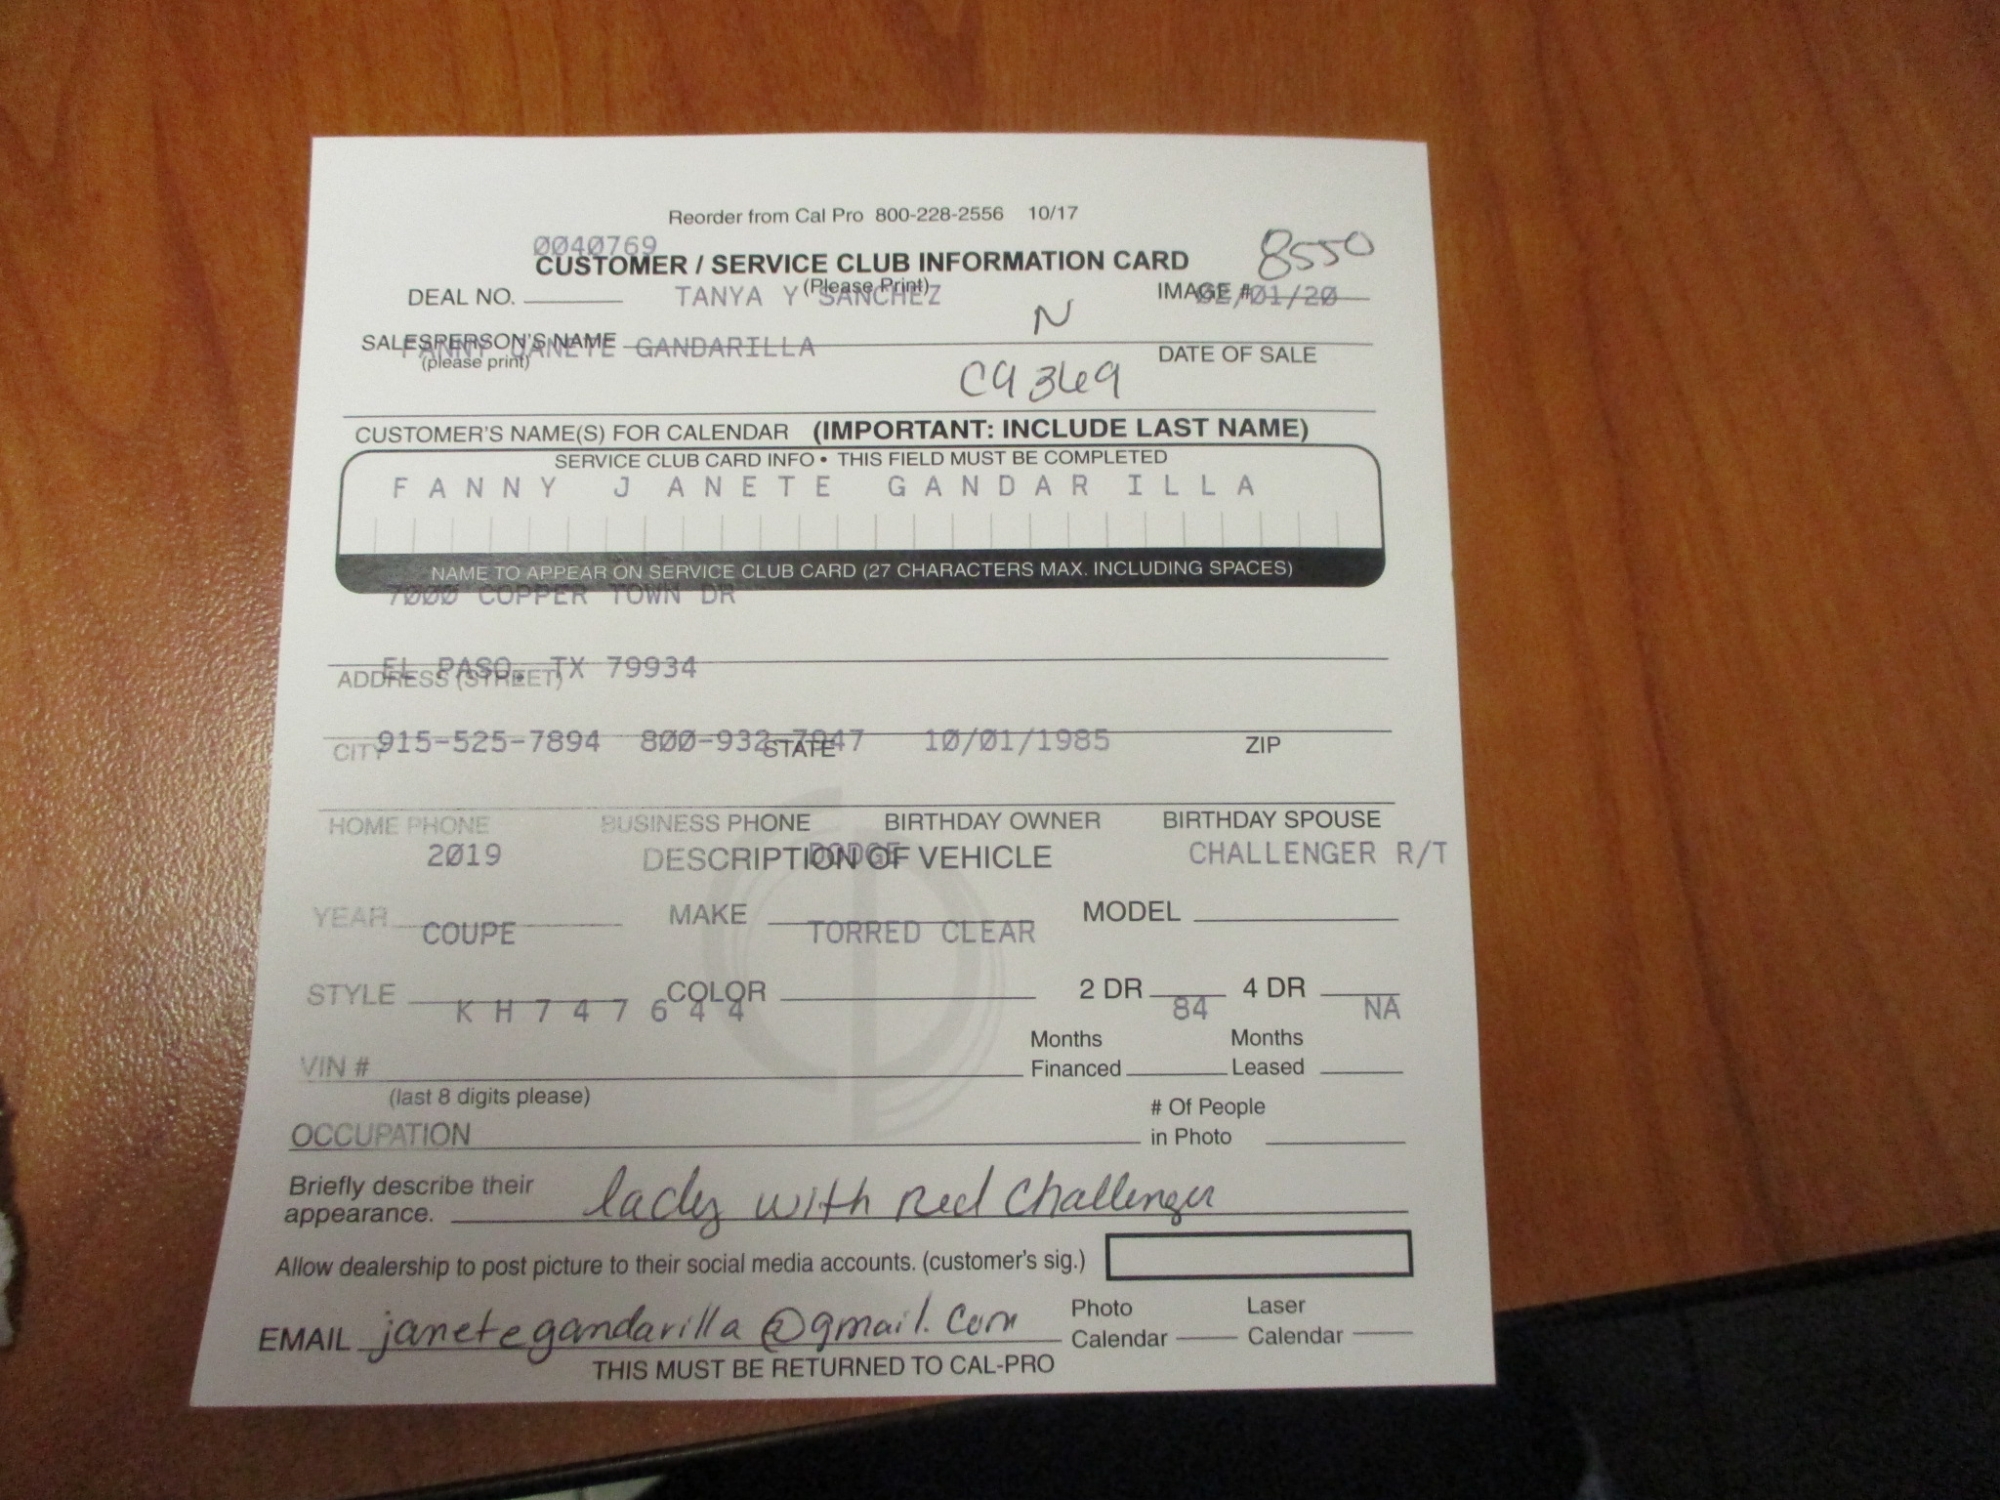 Reorder from Cal Pro 800-228-2556 10/17
0040769
CUSTOMER / SERVICE CLUB INFORMATION CARD 8550
(Please Print)
DEAL NO. TANYA Y SANCHEZ IMAGE # 02/01/20
N
SALESPERSON'S NAME FANNY JANETE GANDARILLA
(please print) DATE OF SALE
C9369
CUSTOMER'S NAME(S) FOR CALENDAR (IMPORTANT: INCLUDE LAST NAME)
SERVICE CLUB CARD INFO • THIS FIELD MUST BE COMPLETED
FANNY JANETE GANDARILLA
NAME TO APPEAR ON SERVICE CLUB CARD (27 CHARACTERS MAX. INCLUDING SPACES)
7000 COPPER TOWN DR
EL PASO, TX 79934
ADDRESS (STREET)
915-525-7894 800-932-7947 10/01/1985
CITY STATE ZIP
HOME PHONE BUSINESS PHONE BIRTHDAY OWNER BIRTHDAY SPOUSE
2019 DODGE CHALLENGER R/T
DESCRIPTION OF VEHICLE
YEAR MAKE MODEL
COUPE TORRED CLEAR
STYLE COLOR 2 DR 4 DR
KH747644 84 NA
Months Months
VIN # Financed Leased
(last 8 digits please)
# Of People
OCCUPATION in Photo
Briefly describe their
appearance. lady with red Challenger
Allow dealership to post picture to their social media accounts. (customer's sig.)
Photo Laser
EMAIL janetegandarilla@gmail.com Calendar Calendar
THIS MUST BE RETURNED TO CAL-PRO